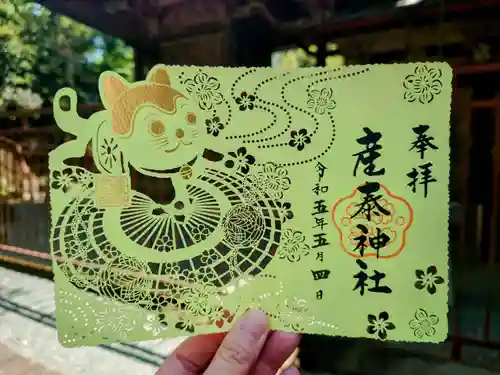 奉拝
産泰神社
令和五年五月四日